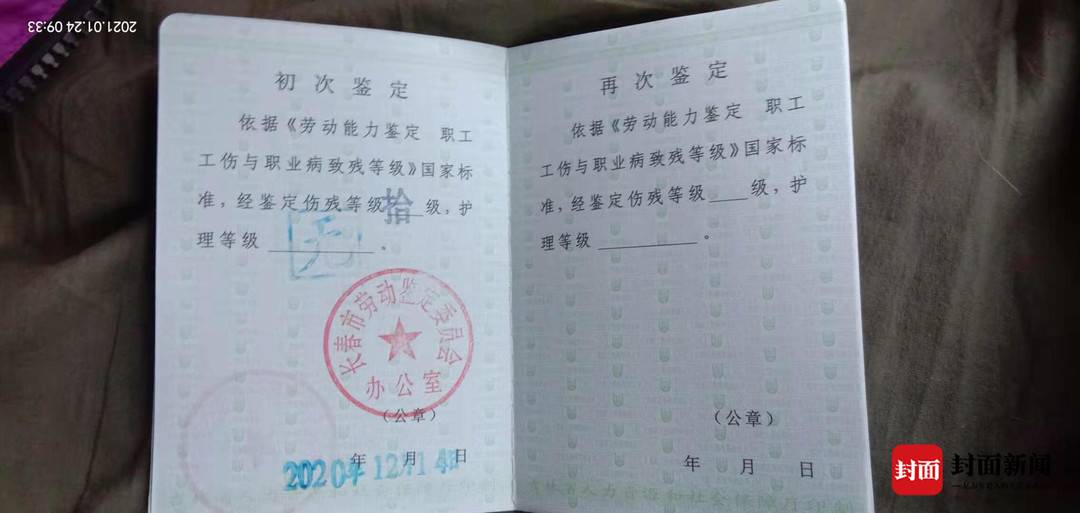 2021.01.24 09:33
初次鉴定
依据《劳动能力鉴定 职工
工伤与职业病致残等级》国家标
准，经鉴定伤残等级拾级，护
理等级 无 。
长春市劳动鉴定委员会
办公室
（公章）
2020年12月14日
再次鉴定
依据《劳动能力鉴定 职工
工伤与职业病致残等级》国家标
准，经鉴定伤残等级___级，护
理等级________。
（公章）
年 月 日
吉林省人力资源和社会保障厅印制
封面 封面新闻